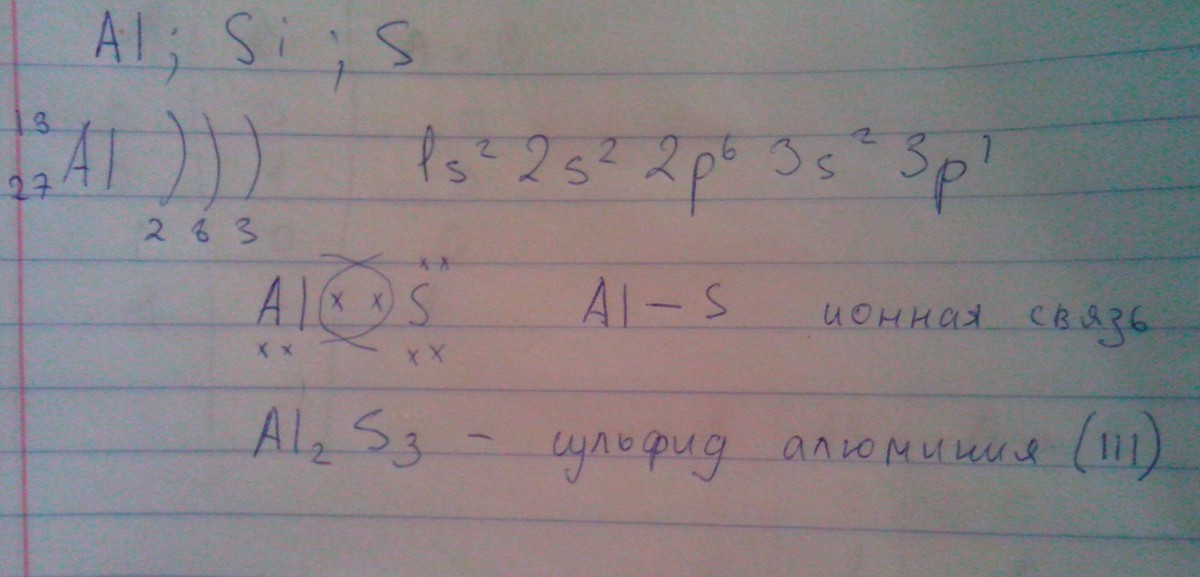 Al; Si; S
13 27 Al ))) 1s² 2s² 2p⁶ 3s² 3p¹
2 8 3
xx
Al x x S Al — S ионная связь
xx xx
Al₂ S₃ - сульфид алюминия (III)